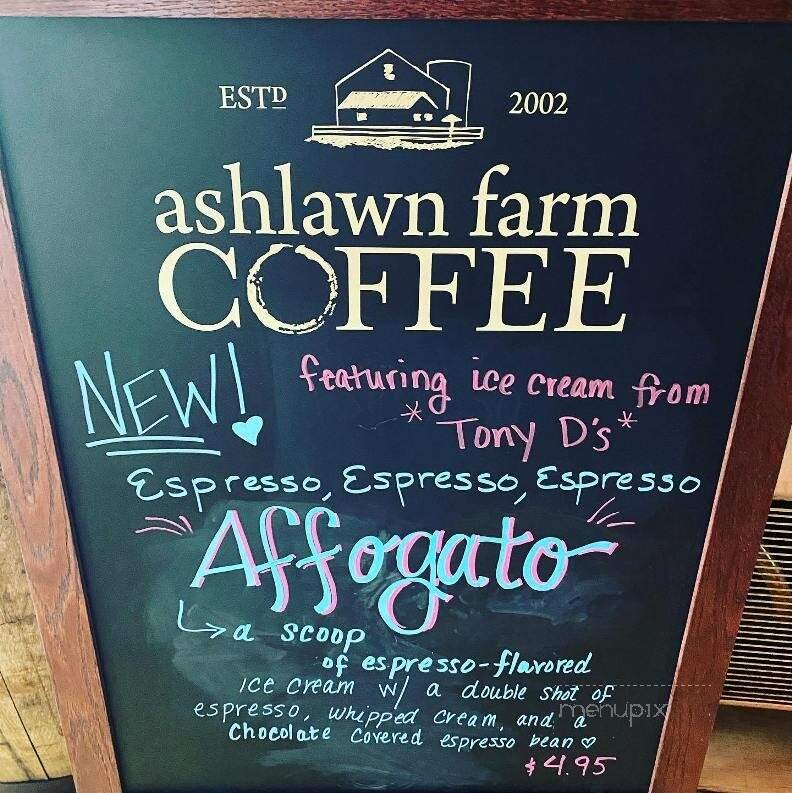 ESTD 2002
ashlawn farm
COFFEE
NEW! featuring ice cream from
*Tony D's*
Espresso, Espresso, Espresso
Affogato
a scoop
of espresso-flavored
ice cream w/ a double shot of
espresso, whipped cream, and a
Chocolate covered espresso bean ♡
$4.95
menupix